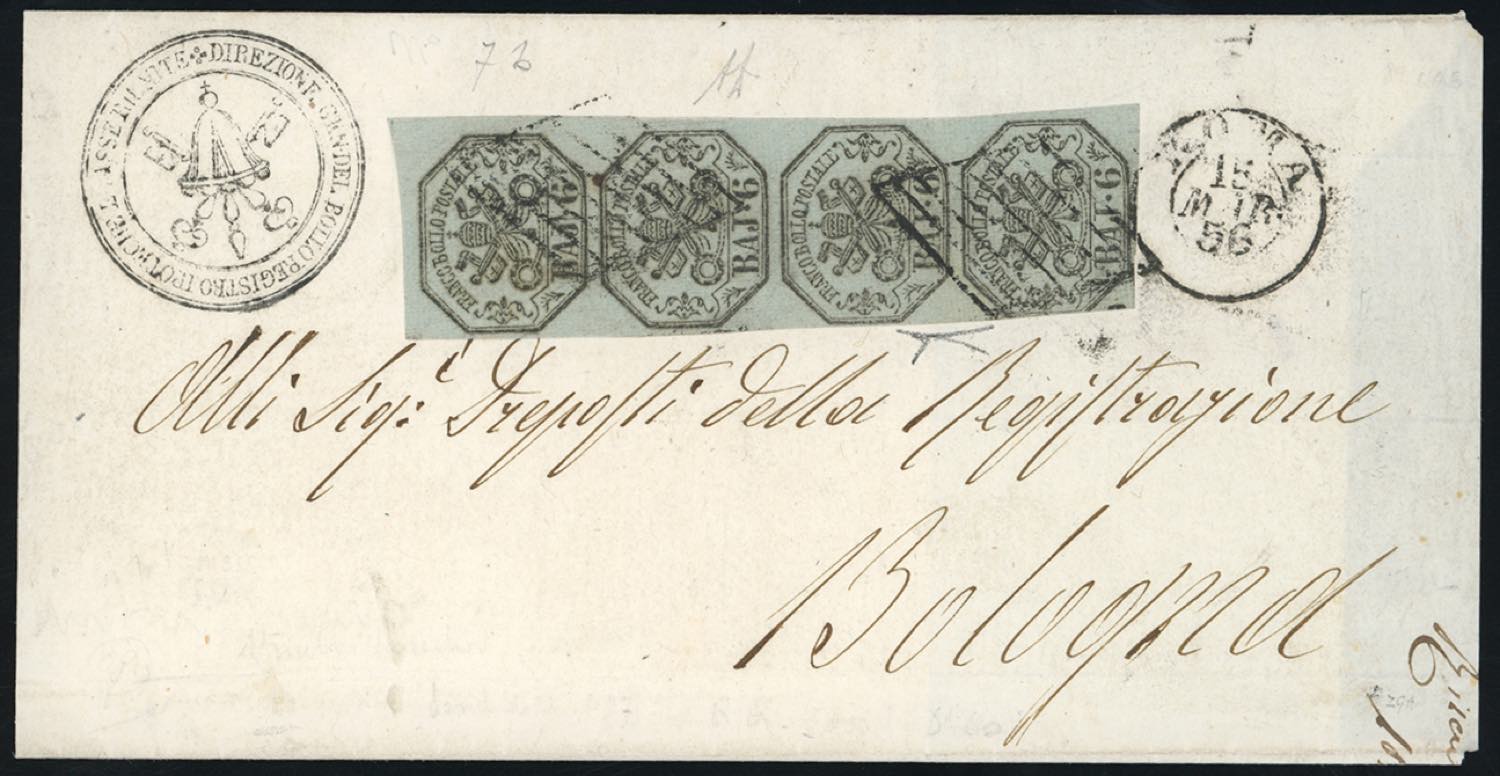 DIREZIONE GEN. DEL BOLLO REGISTRO IPOTECHE E TASSE RIUNITE
7 2
FRANCO BOLLO POSTALE
BAJ. 6
FRANCO BOLLO POSTALE
BAJ. 6
FRANCO BOLLO POSTALE
BAJ. 6
FRANCO BOLLO POSTALE
BAJ. 6
ROMA
15
MAR
56
Alli Sigri Preposti della Registrazione
Bologna